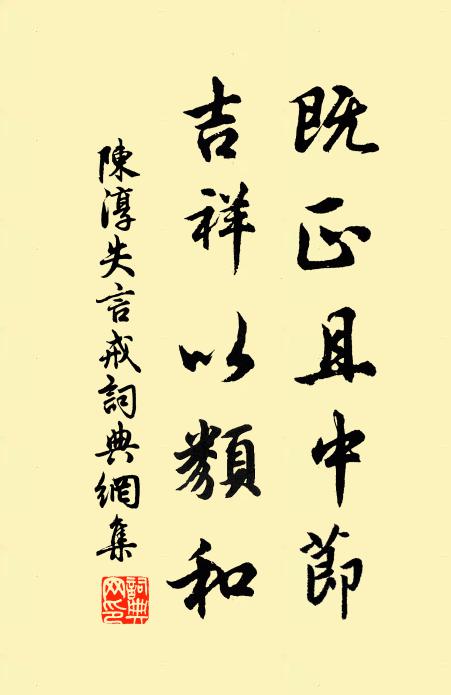 既正且中節
吉祥以類和
陳淳失言戒詞典網集
詞典網印